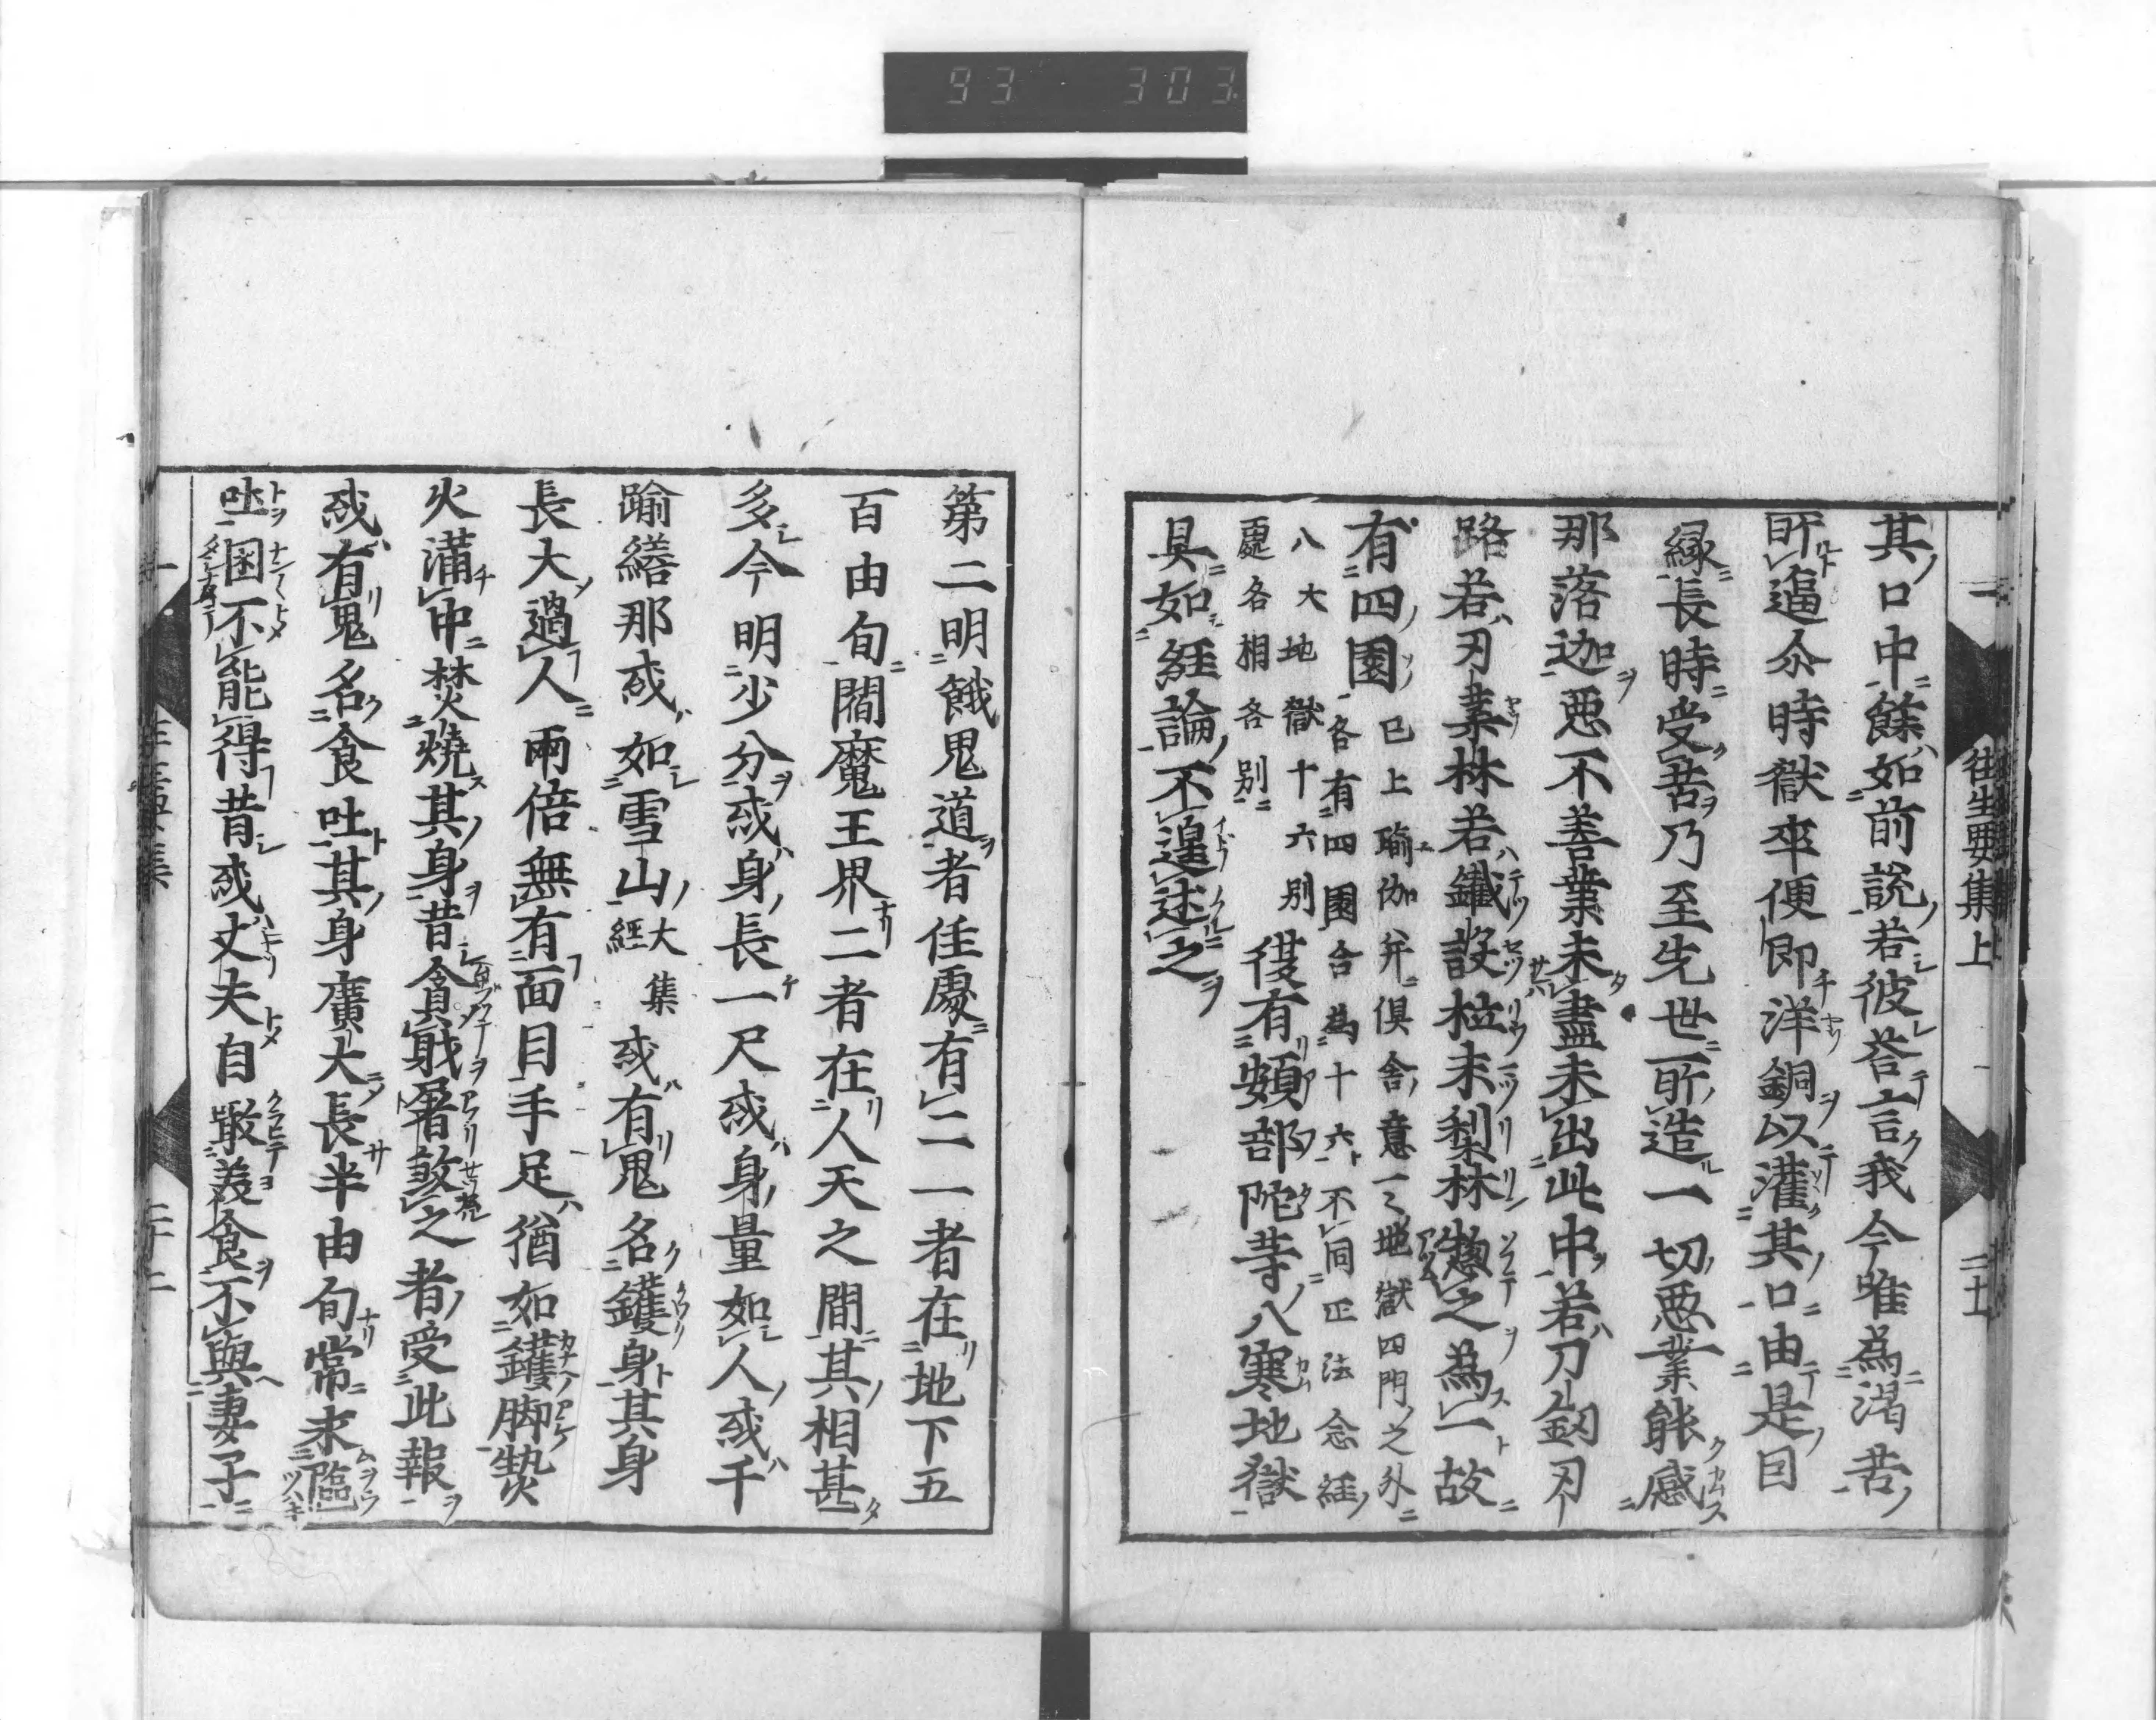 93 303
往生要集上 一 二十一
其口中餘如前說若彼荅言我今唯為渴苦
所逼尒時獄卒便即洋銅以灌其口由是因
緣長時受苦乃至先世所造一切惡業能感
那落迦惡不善業未盡未出此中若刀釰刃
路若刃葉林若鐵設柆末梨林惣之為一故
有四園已上瑜伽并俱舍意一〻地獄四門之外
各有四園合為十六不同正法念経
八大地獄十六別
處各相各別復有頞部陀等八寒地獄
具如経論不遑述之
第二明餓鬼道者住處有二一者在地下五
百由旬閻魔王界二者在人天之間其相甚
多今明少分或身長一尺或身量如人或千
踰繕那或如雪山大集経或有鬼名鑊身其身
長大過人兩倍無有面目手足猶如鑊脚熱
火満中焚燒其身昔貪財屠煞之者受此報
或有鬼名食吐其身廣大長半由旬常求嘔
吐困不能得昔或丈夫自噉美食不與妻子